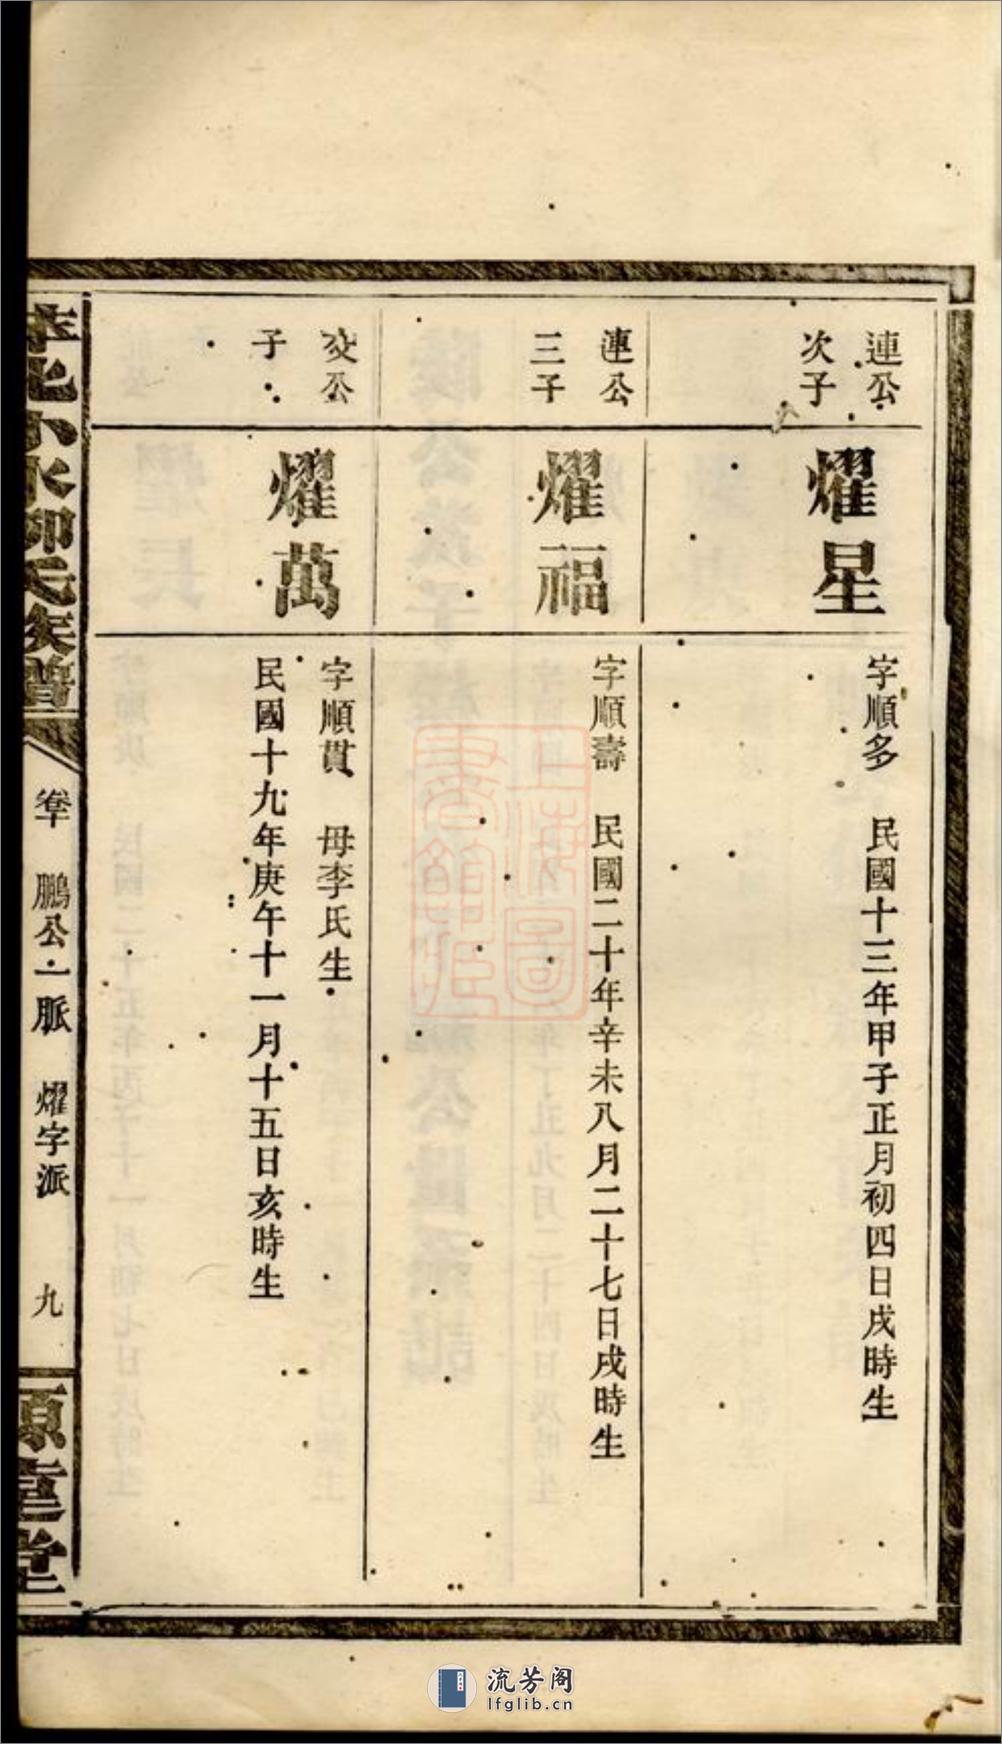 連公
次子
耀星
字順多 民國十三年甲子正月初四日戌時生
連公
三子
耀福
字順壽 民國二十年辛未八月二十七日戌時生
交公
子
耀萬
字順貫 母李氏生
民國十九年庚午十一月十五日亥時生
萍北小水柳氏族譜
卷十 鵬公一脈 耀字派 九
上海圖書館藏
流芳阁
lfglib.cn